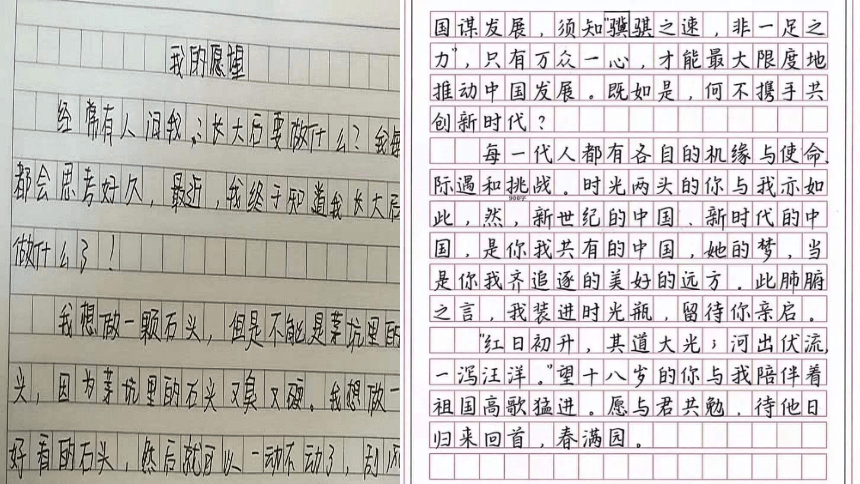 我的愿望
经常有人问我：长大后要做什么？我每
都会思考好久，最近，我终于知道我长大后
做什么了！
我想做一颗石头，但是不能是茅坑里的
头，因为茅坑里的石头又臭又硬。我想做一
好看的石头，然后就可以一动不动了，刮风
国谋发展，须知“骥骐之速，非一足之
力”，只有万众一心，才能最大限度地
推动中国发展。既如是，何不携手共
创新时代？
每一代人都有各自的机缘与使命，
际遇和挑战。时光两头的你与我亦如
此，然，新世纪的中国、新时代的中
国，是你我共有的中国，她的梦，当
是你我齐追逐的美好的远方。此肺腑
之言，我装进时光瓶，留待你亲启。
“红日初升，其道大光；河出伏流，
一泻汪洋。”望十八岁的你与我陪伴着
祖国高歌猛进。愿与君共勉，待他日
归来回首，春满园。